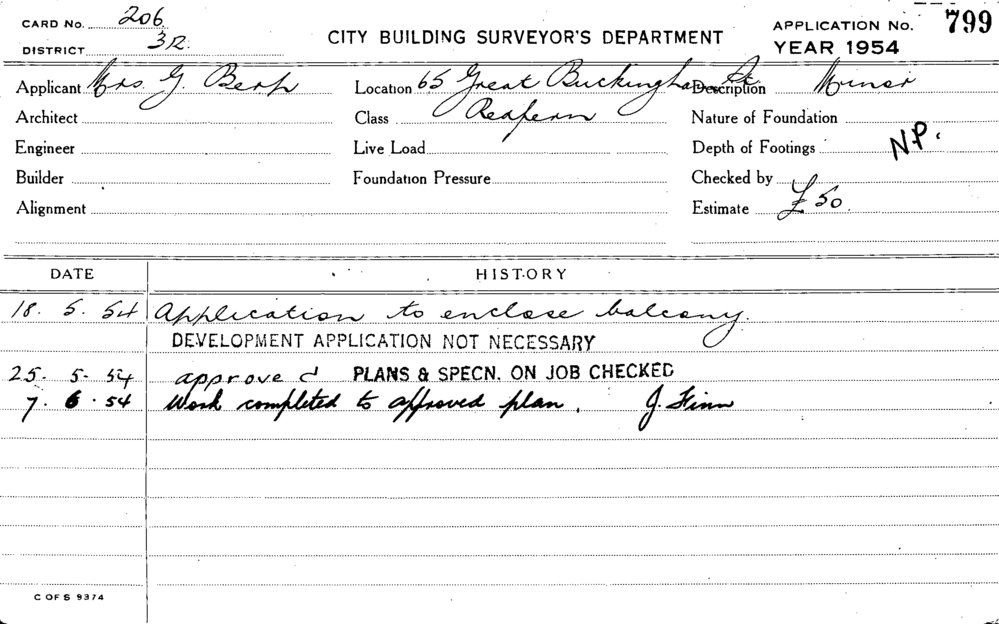 CARD No. 206
DISTRICT 3R.
CITY BUILDING SURVEYOR'S DEPARTMENT
APPLICATION No. 799
YEAR 1954
Applicant Mrs. G. Location 65 Great Buckingham St Description Minor
Architect Class Redfern Nature of Foundation
Engineer Live Load Depth of Footings N.P.
Builder Foundation Pressure Checked by
Alignment Estimate £50.
DATE HISTORY
18. 5. 54 Application to enclose balcony.
DEVELOPMENT APPLICATION NOT NECESSARY
25. 5. 54 approved PLANS & SPECN. ON JOB CHECKED
7. 6. 54 Work completed to approved plan. J. Finn
C OF S 9374